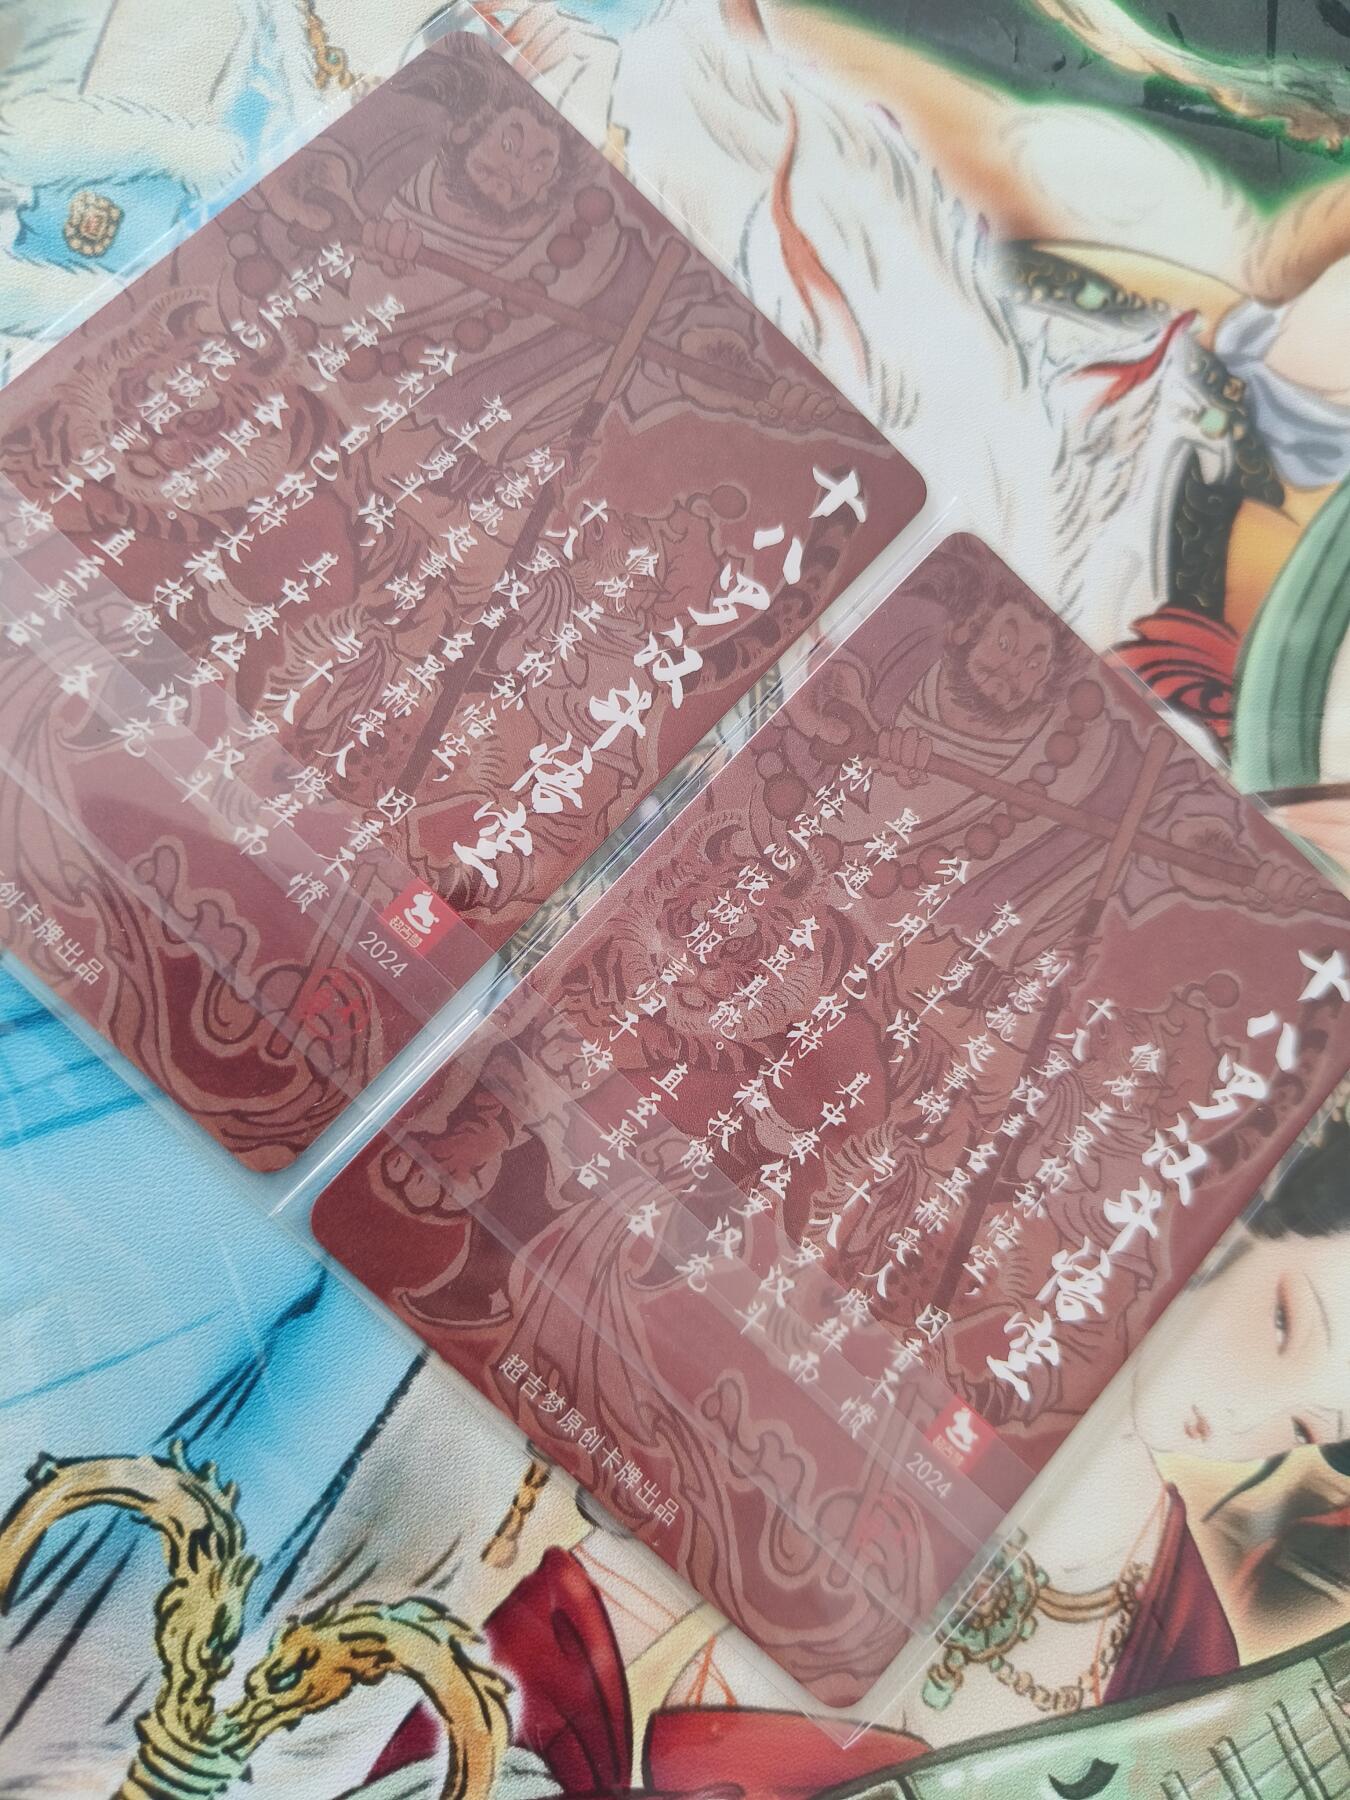 十八罗汉斗悟空
修成正果的孙悟空，因看不惯
十八罗汉声名显赫受人膜拜而
刻意挑起事端，与十八罗汉斗
智斗勇斗法，其中每位罗汉充
分利用自己的特长和技能，各
显神通，各显其能。直至最后
孙悟空心悦诚服言归于好。
超吉梦
2024
创卡牌出品
十八罗汉斗悟空
修成正果的孙悟空，因看不惯
十八罗汉声名显赫受人膜拜而
刻意挑起事端，与十八罗汉斗
智斗勇斗法，其中每位罗汉充
分利用自己的特长和技能，各
显神通，各显其能。直至最后
孙悟空心悦诚服言归于好。
超吉梦
2024
超吉梦原创卡牌出品